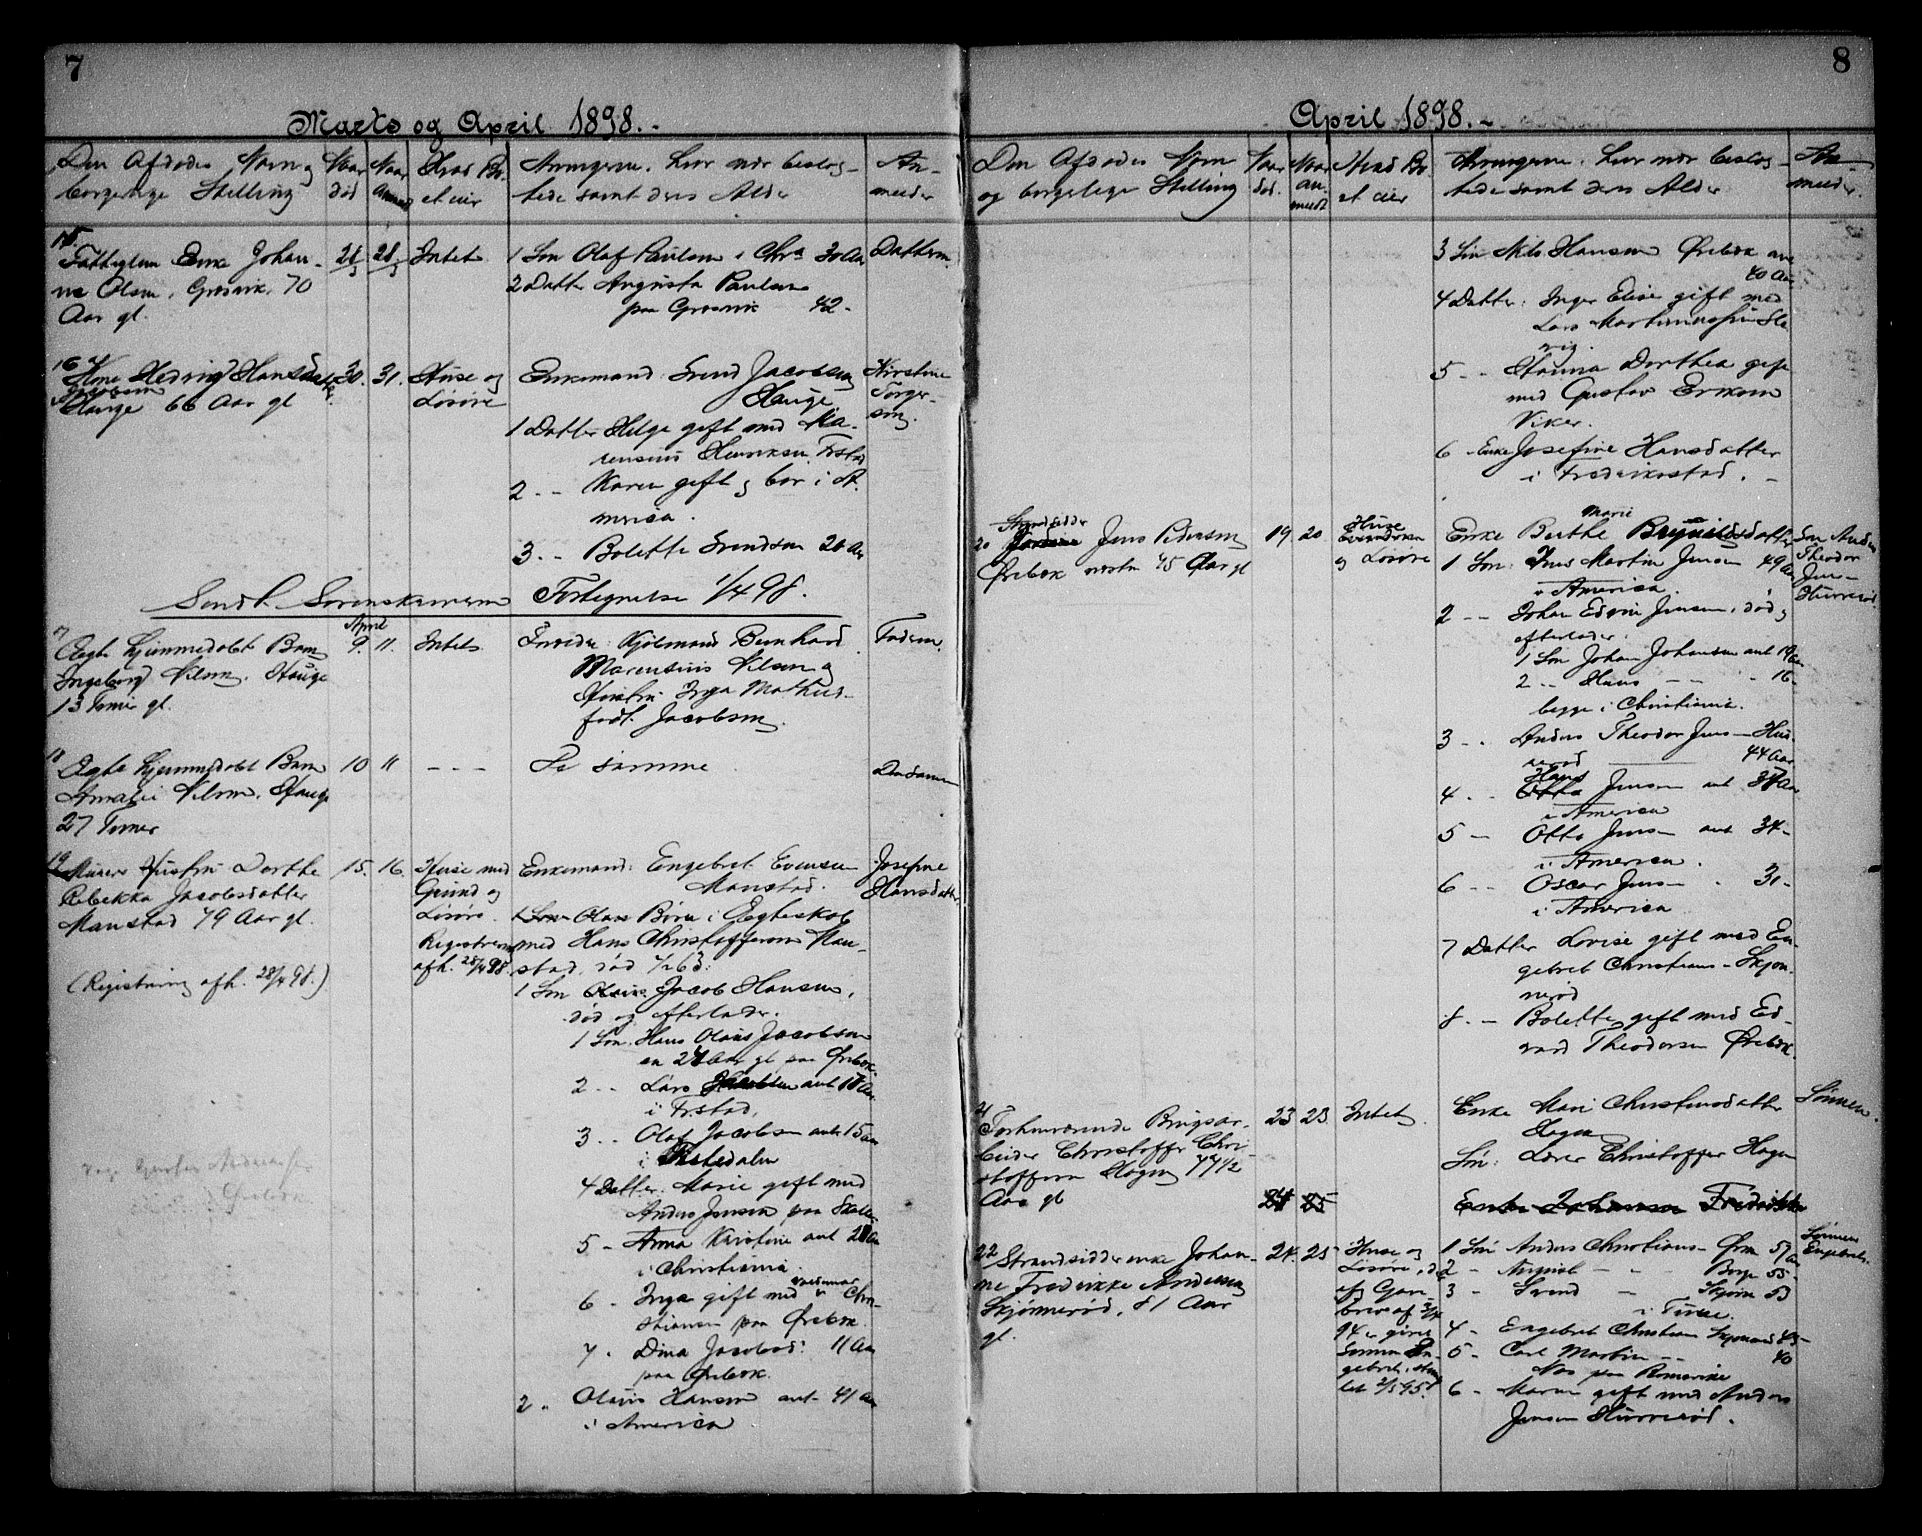 7
Marts og April 1898.-
Den Afdødes Navn og
borgerlige Stilling
Naar
død
Naar
anmeldt
Hvad Bo
et eier
Arvingerne, hvor nær beslæg-
tede samt deres Alder
An-
melder
15
Fattiglem Enke Johan-
ne Olsen, Græsvik, 70
Aar gl.
28/3
Intet
1 Søn Olaf Paulsen i Chra 30 Aar
2 Datter Augusta Paulsen
paa Græsvik 42-
Datteren
16
Kone Hedvig Hansdatter
Hauge 66 Aar gl
30.
31.
Huse og
Løsøre
Enkemand: Svend Jacobsen
Hauge
1 Datter Helga gift med Ma-
rensius Henriksen, Frstad
2 - - Karen gift og bor i A-
merica.
3 - - Bolette Svendsen 20 Aar
Kirstine
Torger-
sen.
Sendt Sorenskriveren Fortegnelse 1/4 98.
17
Ægte hjemmedøbt Barn
Ingeborg Nilsen, Hauge
13 Timer gl.
April
9.
11.
Intet
Forældre: Kjølmand Bernhard
Marensius Nilsen og
Hustru Inga Mathis-
født Jacobsen.
Faderen.
18
Ægte hjemmedøbt Barn
Amalie Nilsen, Hauge
27 Timer
10
11
- - -
De samme
Den samme
19
Murer Hustru Dorthe
Rebekka Jacobsdatter
Manstad 79 Aar gl.
(Registrering afh. 28/4 98.)
15.
16.
Huse med
Grund og
Løsøre.
Registrering
afh. 28/4 98.
Enkemand: Engebret Evensen
Manstad.
Børn i Ægteskab
med Hans Christoffersen Man-
stad, død
1 Søn Jacob Hansen,
død og efterlader.
1 Søn. Hans Olaus Jacobsen
en 24 Aar gl paa Ørebæk.
2 - - Lars Jacobsen ant 18 Aar
i Frstad,
3 - - Olaf Jacobsen ant. 15 aar
i
4 Datter: Marie gift med
Anders Jensen paa
5 - Anna Kristine ant 20 Aar
i Christiania.
6 - Inga gift med Chri-
stiansen paa Ørebæk.
7 - Dina Jacobsd: 11 Aar
paa Ørebæk.
2 - Olaus Hansen ant- 41 Aar
i America
Josefine
Hansdatter.
8
April 1898.-
Den Afdødes Navn
og borgerlige Stilling
Naar
død.
Naar
an-
meldt
Hvad Bo
et eier
Arvingerne, hvor nær beslæg-
tede samt deres Alder
An-
melder.
3 Søn Nils Hansen Ørebæk
40 Aar
4 Datter: Inger Elise gift med
Lars
5 - - Hanna Dorthea gift
med Gustav Eriksen
Viker.
6 - Enke Josefine Hansdatter
i Fredrikstad. -
20
Strandsidder
Jens Pedersen
Ørebæk næsten 75 Aar gl
19
20
Huse
og Løsøre
Enke Berthe Marie Brynildsdatter
1 Søn: Jens Martin Jensen 49 Aar
i America.
2 - - Johan Edvin Jensen, død og
efterlader:
1 Søn Johan Johansen ant 19 Aar
2 - - Hans - - - 16-
begge i Christiania.
3 - - Anders Theodor Jens- Hur-
rerød 44 Aar
4 - - Hans Jensen ant 37 Aar
i America
5 - Otto Jens- ant 34-
i America.
6 - - Oscar Jens- - 31-
i America
7 Datter Lovise gift med En-
gebret Christians- Skjøn-
nerød
8 - - Bolette gift med Ed-
vard Theodorsen Ørebæk.
Søn Anders
Theodor
Jens-
Hurrerød.
21
Forhenværende Brugsar-
beider Christoffer Chri-
stoffersen Hagen 77 1/2
Aar gl
23
23
Intet
Enke Mari Christensdatter
Hagen
Søn: Lærer Christoffer Hagen
Sønnen.
24
25
Enke Johanne Fredrikke
22
Strandsidderenke Johan-
ne Fredrikke Andersen
Skjønnerød, 81 Aar
gl.
24.
25
Huse og
Løsøre, der
efter Gave-
brev af
94 er givet
Sønnen En-
gebret,
1 Søn Anders Christians- 57 Aar
2 - August - - Borge 55-
3 - Svend - Skjøn 53
i Tistse.
4 - Engebret Christians Skjønnerød 45-
5 - Carl Martin - - 40
Næs paa Romerike
6 - Maren gift med Anders
Jensen Hurrerød.
Sønnen
Engebret.